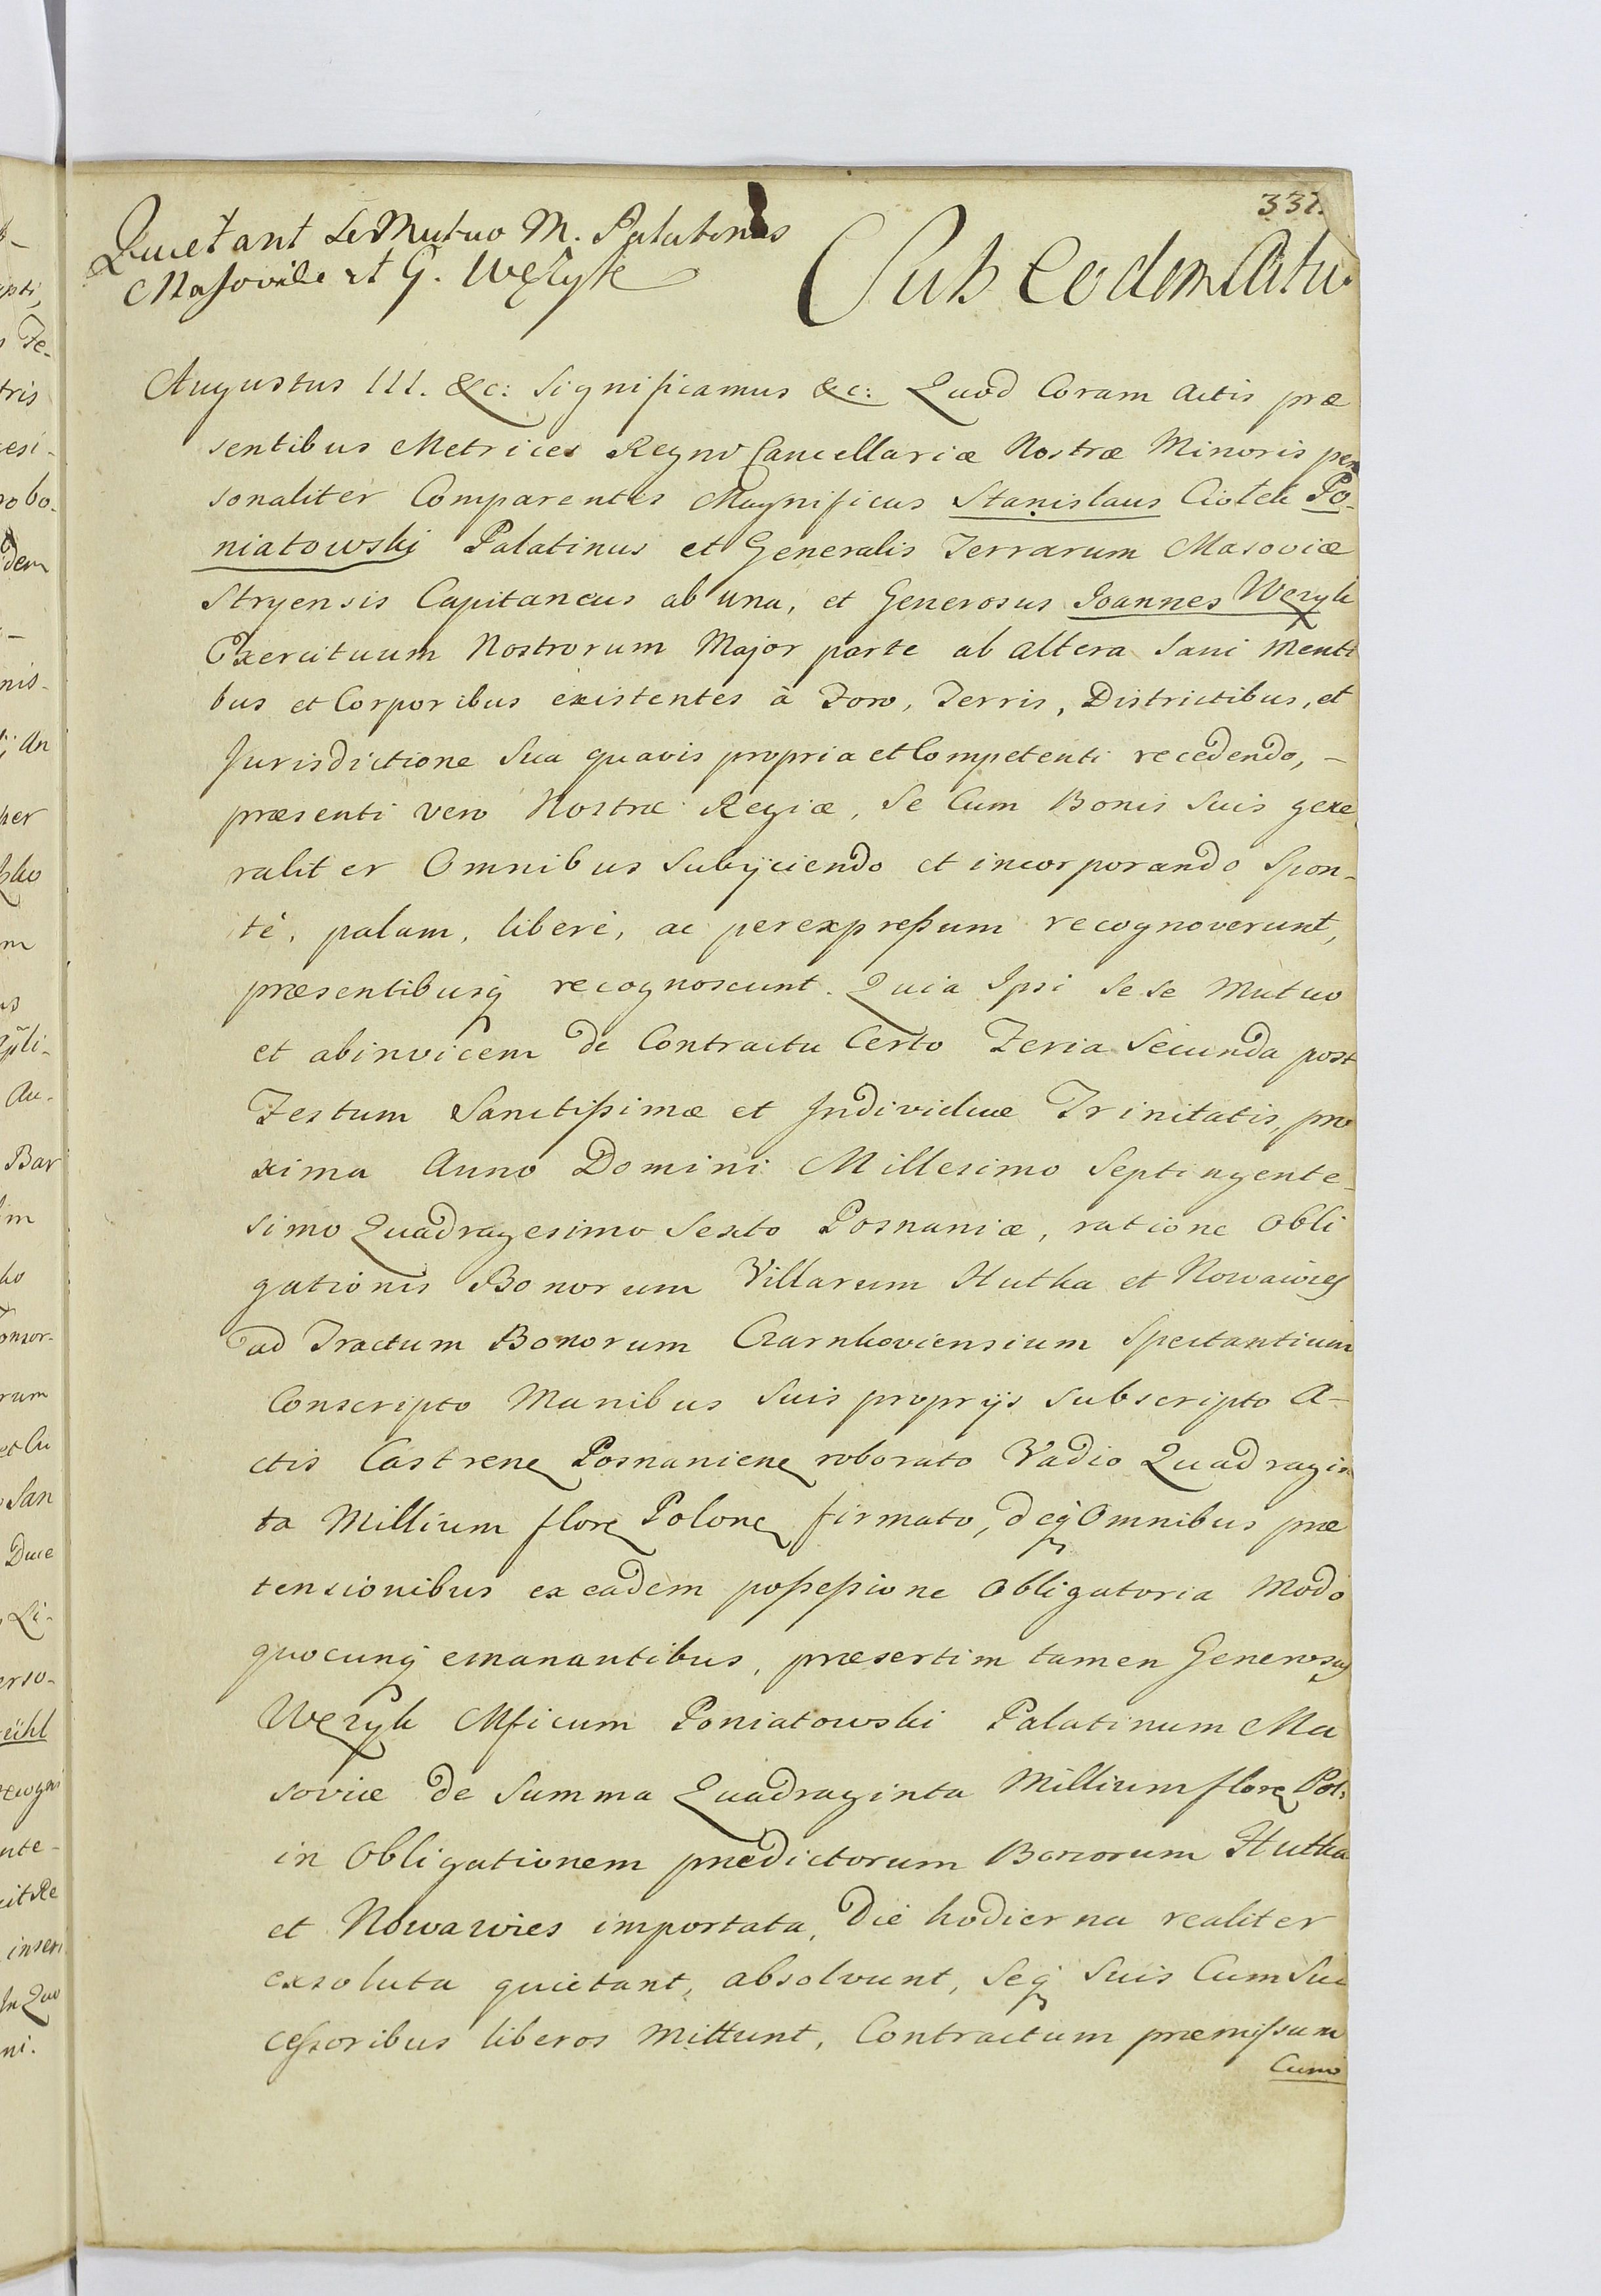 331.
Quietant se Mutuo M. Palatinus
Masoviæ et G. Węzyk
Sub Eodem Actu
Augustus III. &c: Significamus &c: Quod Coram Actis præ
sentibus Metrices Regni Cancellariæ Nostræ Minoris per
sonaliter Comparentes Magnificus Stanislaus Ciołek Po-
niatowski Palatinus et Generalis Terrarum Masoviæ
Stryensis Capitaneus ab una, et Generosus Joannes Węzyk
Exercituum Nostrorum Major parte ab altera Sani Menti
bus et Corporibus existentes à Foro, Terris, Districtibus, et
Jurisdictione Sua quavis propria et Competenti recedendo, –
præsenti vero Nostræ Regiæ, Se Cum Bonis Suis gene
raliter Omnibus Subijciendo et incorporando Spon-
tè, palam, liberè, ac per expressum recognoverunt,
præsentibusq recognoscunt. Quia Ipsi Se Se Mutuo
et abinvicem de Contractu Certo Feria Secunda post
Festum Sanctissimæ et Individuæ Trinitatis, pro
xima Anno Domini Millesimo Septingente-
simo Quadragesimo Sexto Posnaniæ, ratione Obli
gationis Bonorum Villarum Hutka et Nowawieś
ad Tractum Bonorum Czarnkoviensium Spectantium
Conscripto Manibus Suis proprijs Subscripto A-
ctis Castren Posnanien roborato Vadio Quadragin
ta Millium flor Polon firmato, deq Omnibus præ
tensionibus ex eadem possessione Obligatoria Modo
quocunq emanantibus, præsertim tamen Generosus
Węzyk Mficum Poniatowski Palatinum Ma
soviæ de Summa Quadraginta Millium flor Pol:
in Obligationem prædictorum Bonorum Hutka
et Nowawies importata, Die hodierna realiter
exsoluta quietant, absolvunt, Seq Suis Cum Suc
cessoribus liberos Mittunt, Contractum præmissum
Cum